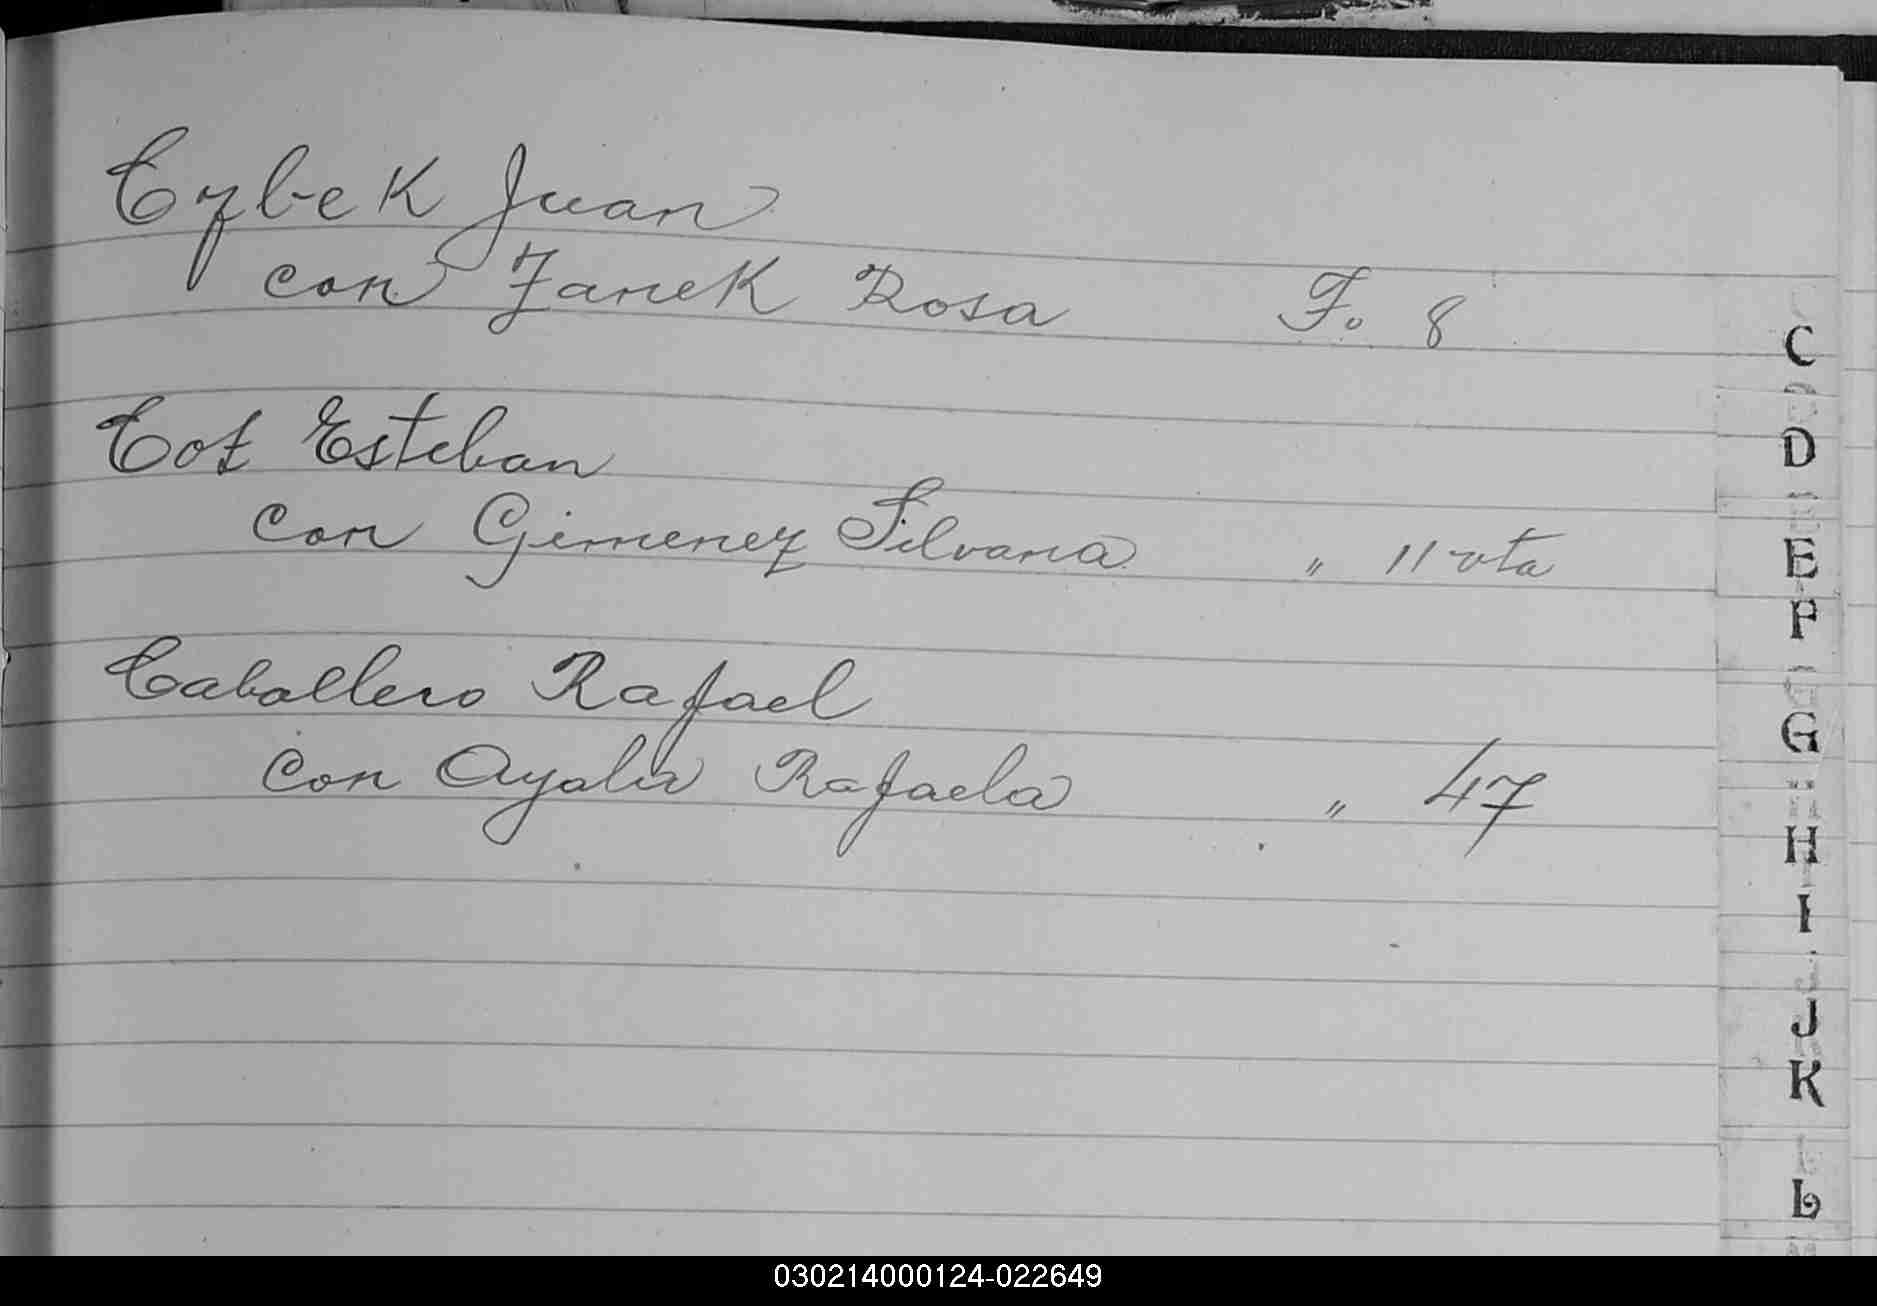 Cybek Juan
con Janek Rosa F. 8
Cot Esteban
con Gimenez Silvana " 11 vta
Caballero Rafael
con Ayala Rafaela " 47
C
D
E
F
G
H
I
J
K
L
030214000124-022649